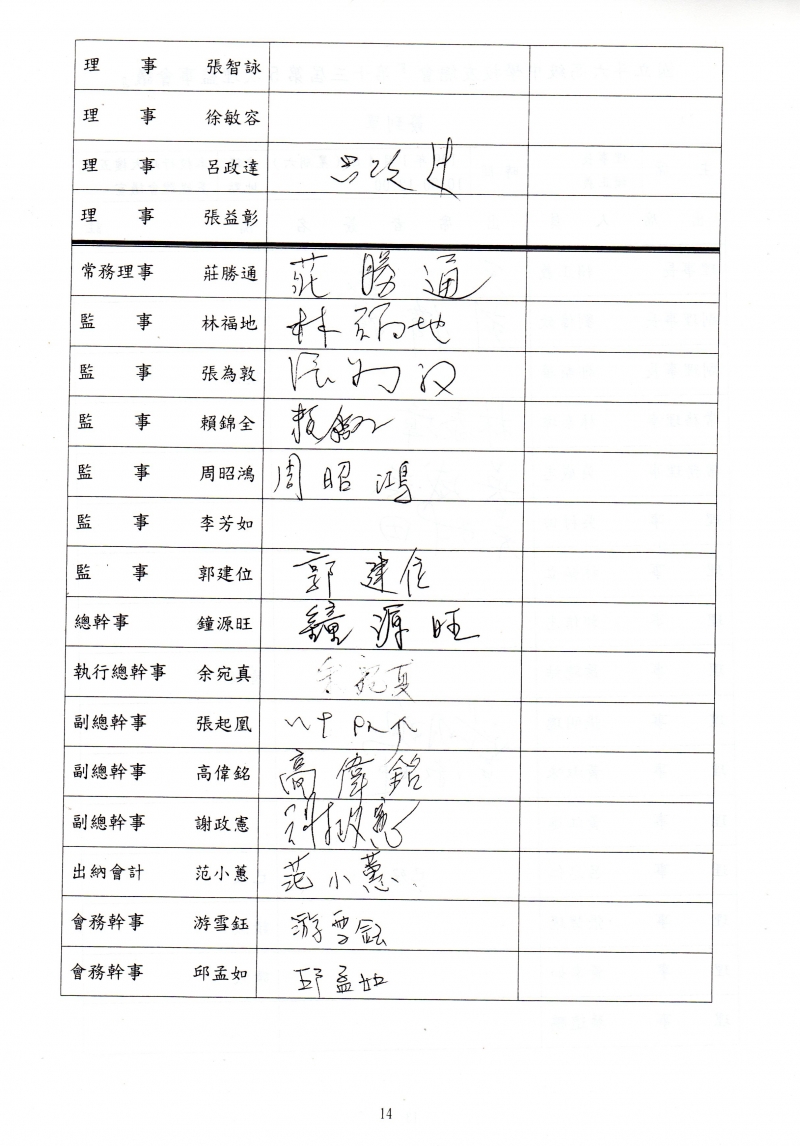 理事 張智詠
理事 徐敏容
理事 呂政達 呂政達
理事 張益彰
常務理事 莊勝通 莊勝通
監事 林福地 林福地
監事 張為敦
監事 賴錦全
監事 周昭鴻 周昭鴻
監事 李芳如
監事 郭建位 郭建位
總幹事 鐘源旺 鐘源旺
執行總幹事 余宛真 余宛真
副總幹事 張起凰
副總幹事 高偉銘 高偉銘
副總幹事 謝政憲 謝政憲
出納會計 范小蕙 范小蕙
會務幹事 游雪鈺 游雪鈺
會務幹事 邱孟如 邱孟如
14